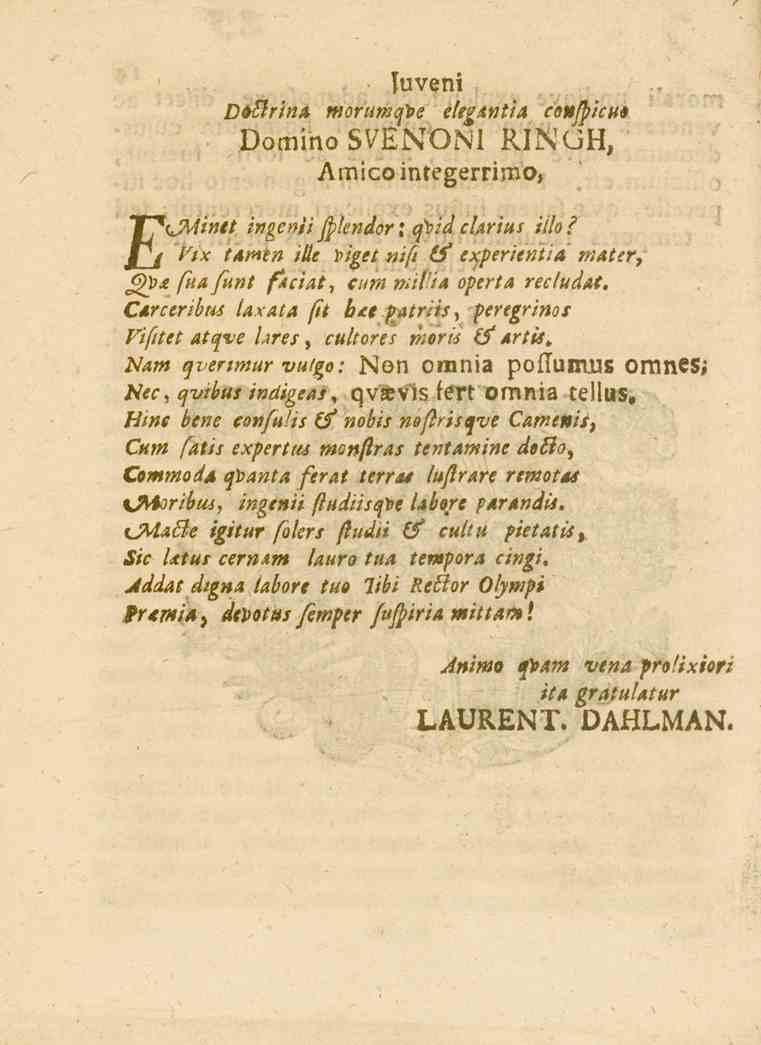 Iuveni
Doctrina morumqve elegantia conſpicuo
Domino SVENONI RINGH,
Amico integerrimo,
EMinet ingenii ſplendor: qvid clarius illo?
Vix tamen ille viget niſi & experientia mater,
Qvæ ſua ſunt faciat, cum millia operta recludat.
Carceribus laxata ſit hæc patriis, peregrinos
Viſitet atqve lares, cultores moris & artis.
Nam qverimur vulgo: Non omnia poſſumus omnes;
Nec, qvibus indigeas, qvævis fert omnia tellus.
Hinc bene conſulis & nobis noſtrisqve Camenis,
Cum ſatis expertus monſtras tentamine docto,
Commoda qvanta ferat terras luſtrare remotas
Moribus, ingenii ſtudiisqve labore parandis.
Macte igitur ſolers ſtudii & cultu pietatis,
Sic lætus cernam lauro tua tempora cingi.
Addat digna labore tuo Tibi Rector Olympi
Præmia, devotus ſemper ſuſpiria mittam!
Animo qvam vena prolixiori
ita gratulatur
LAURENT. DAHLMAN.